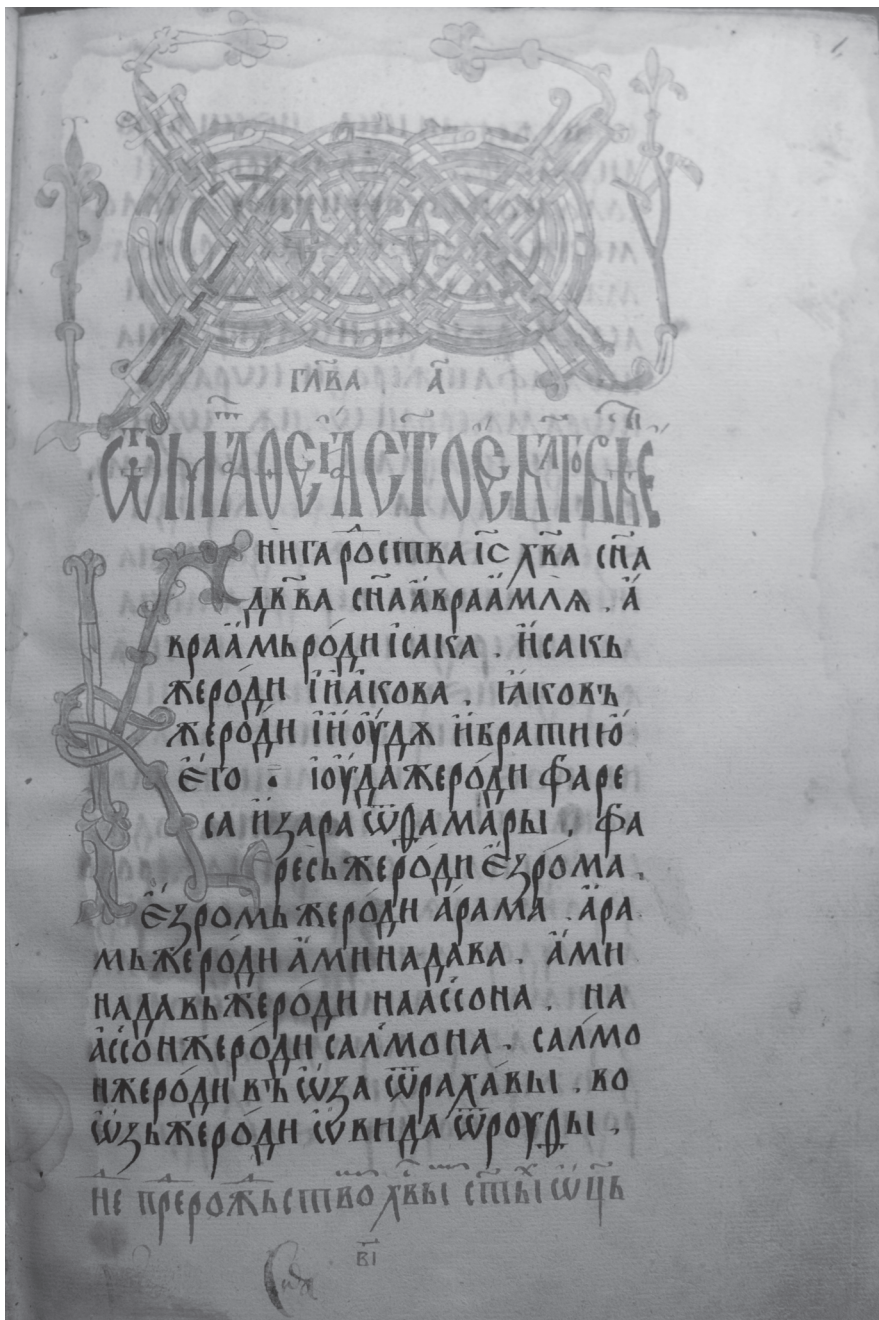 глв҃а а҃
Ѿ маⷴѳеа ст҃ое бл҃говⷭ҇ѣ
нига роⷭ҇ства іс҃ хв҃а сн҃а
дв҃два сн҃а авраамлѧ . а
враамь роди ісака . исакь
же роди іиакова . іаковъ
же роди іиоудѫ и братию
его . іоуда же роди фаре
са и зара ѿ ѳамары , фа
ресь же роди езрома ,
езромь же роди арама . ара
мь же роди аминадава . ами
надавь же роди наассона . на
ассон же роди салмона . салмо
н же роди въѡза ѿ рахавы . во
ѡзь же роди ѡвида ѿ роуѳы ,
не прⷣе рожⷣьство хвⷭ҇ы ст҃ыⷯ ѡц҃ь
в҃і